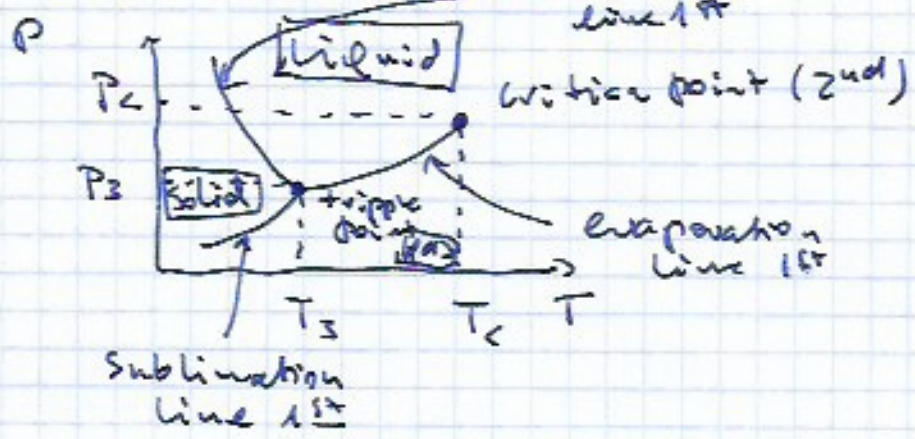 P
line 1st
Liquid
Pc
critica point (2nd)
P3
Solid
tripple
point
gas
evaporation
line 1st
T3
Tc
T
Sublimation
line 1st